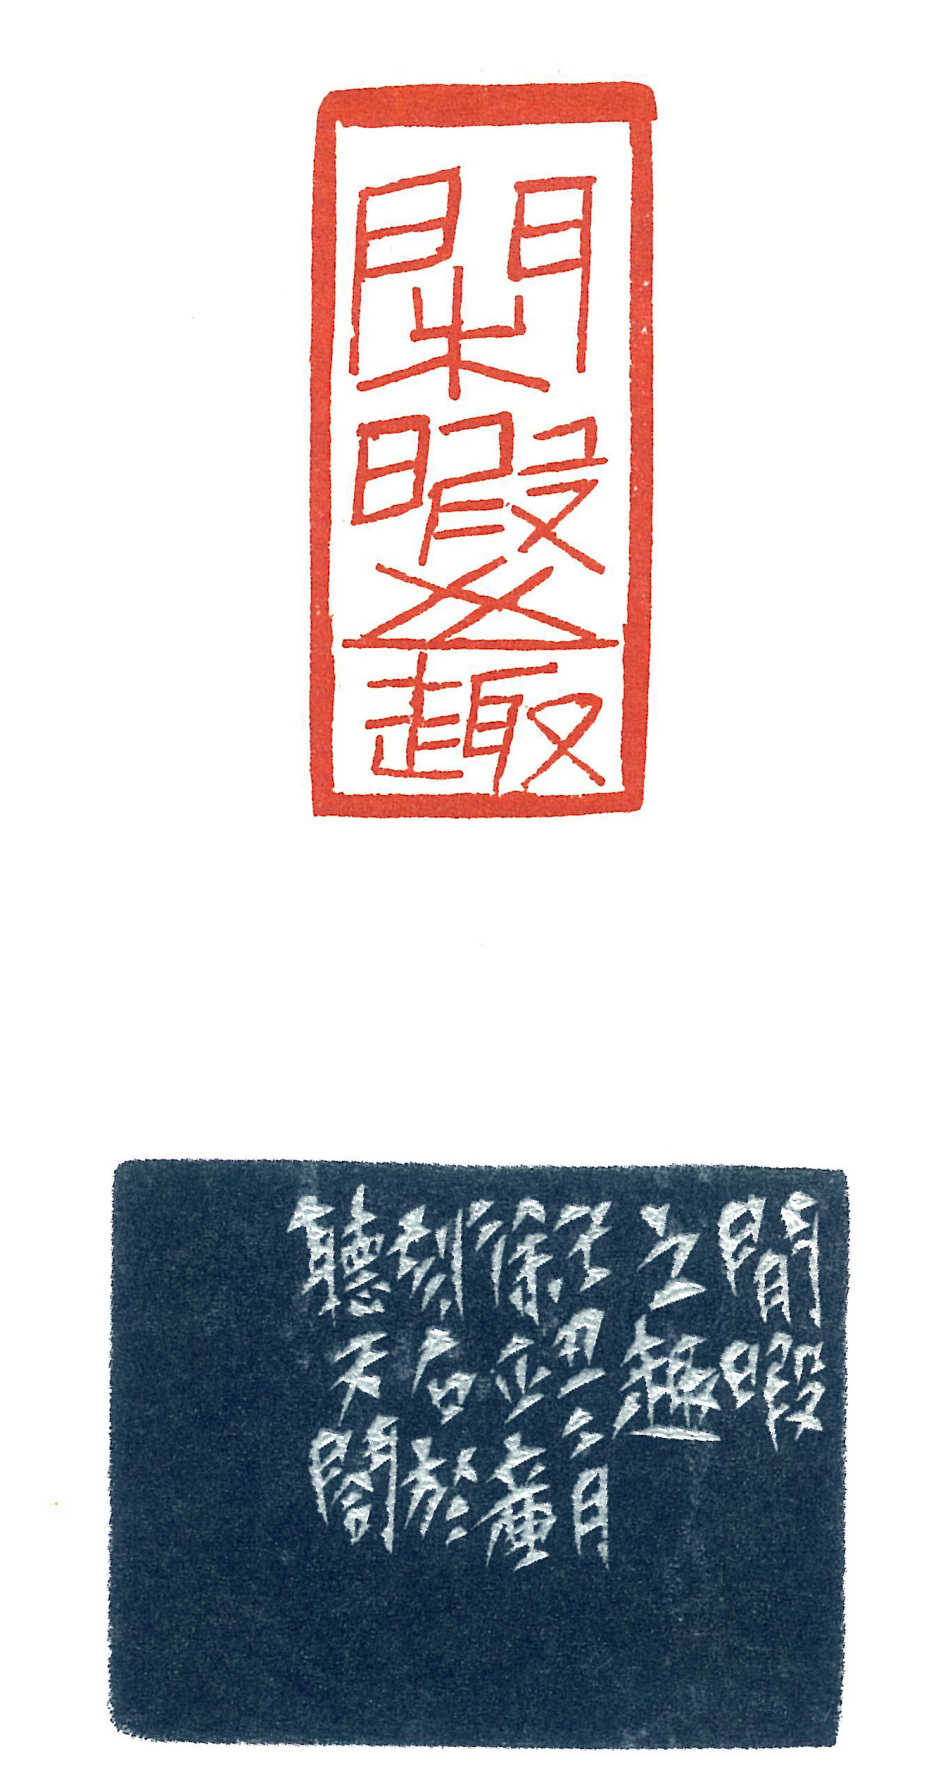 閑暇之趣
閒暇
之趣
丑二月
徐正廉
刻石於
聽天閣